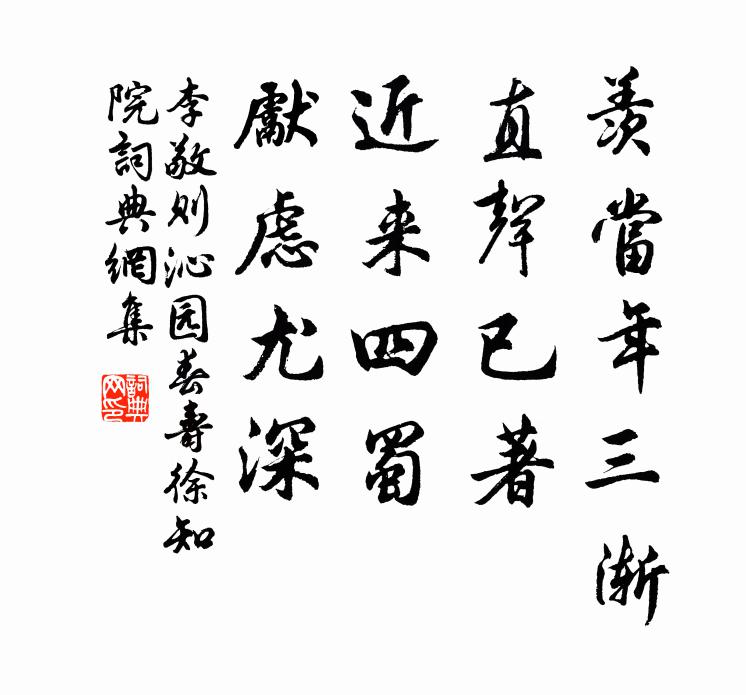 羨當年三漸
直聲已著
近来四蜀
獻慮尤深
李敬则沁园春壽徐知
院詞典網集
詞典
网印